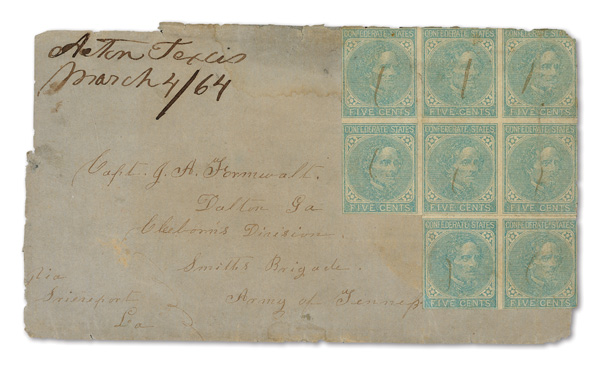 Acton Texas
March 4/64
CONFEDERATE STATES
FIVE CENTS
CONFEDERATE STATES
FIVE CENTS
CONFEDERATE STATES
FIVE CENTS
CONFEDERATE STATES
FIVE CENTS
CONFEDERATE STATES
FIVE CENTS
CONFEDERATE STATES
FIVE CENTS
CONFEDERATE STATES
FIVE CENTS
CONFEDERATE STATES
FIVE CENTS
Capt. J. A. Formwalt.
Dalton Ga
Cleborns Division.
Smiths Brigade.
Army of Tenness
via
Srieveport
La